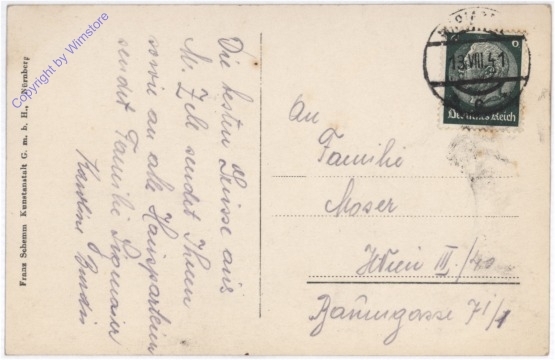 Die besten Grüsse aus
M. Zell sendet Ihnen
sowie an alle Hausparteien
sendet Familie
Karoline
An
Familie
Moser
Wien III./40
Baumgasse 71/1
13.VIII.41
6
Deutsches Reich
Franz Schemm Kunstanstalt G. m. b. H., Nürnberg
Copyright by Wimstore